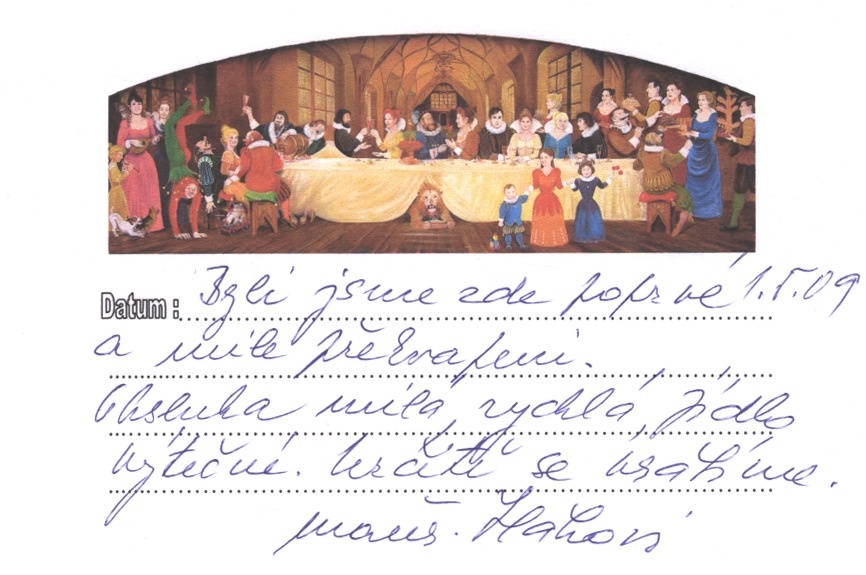 Datum: Byli jsme zde poprvé 1.5.09
a mile překvapeni.
Obsluha milá, rychlá, jídlo
výtečné. Určitě se vrátíme.
manž.